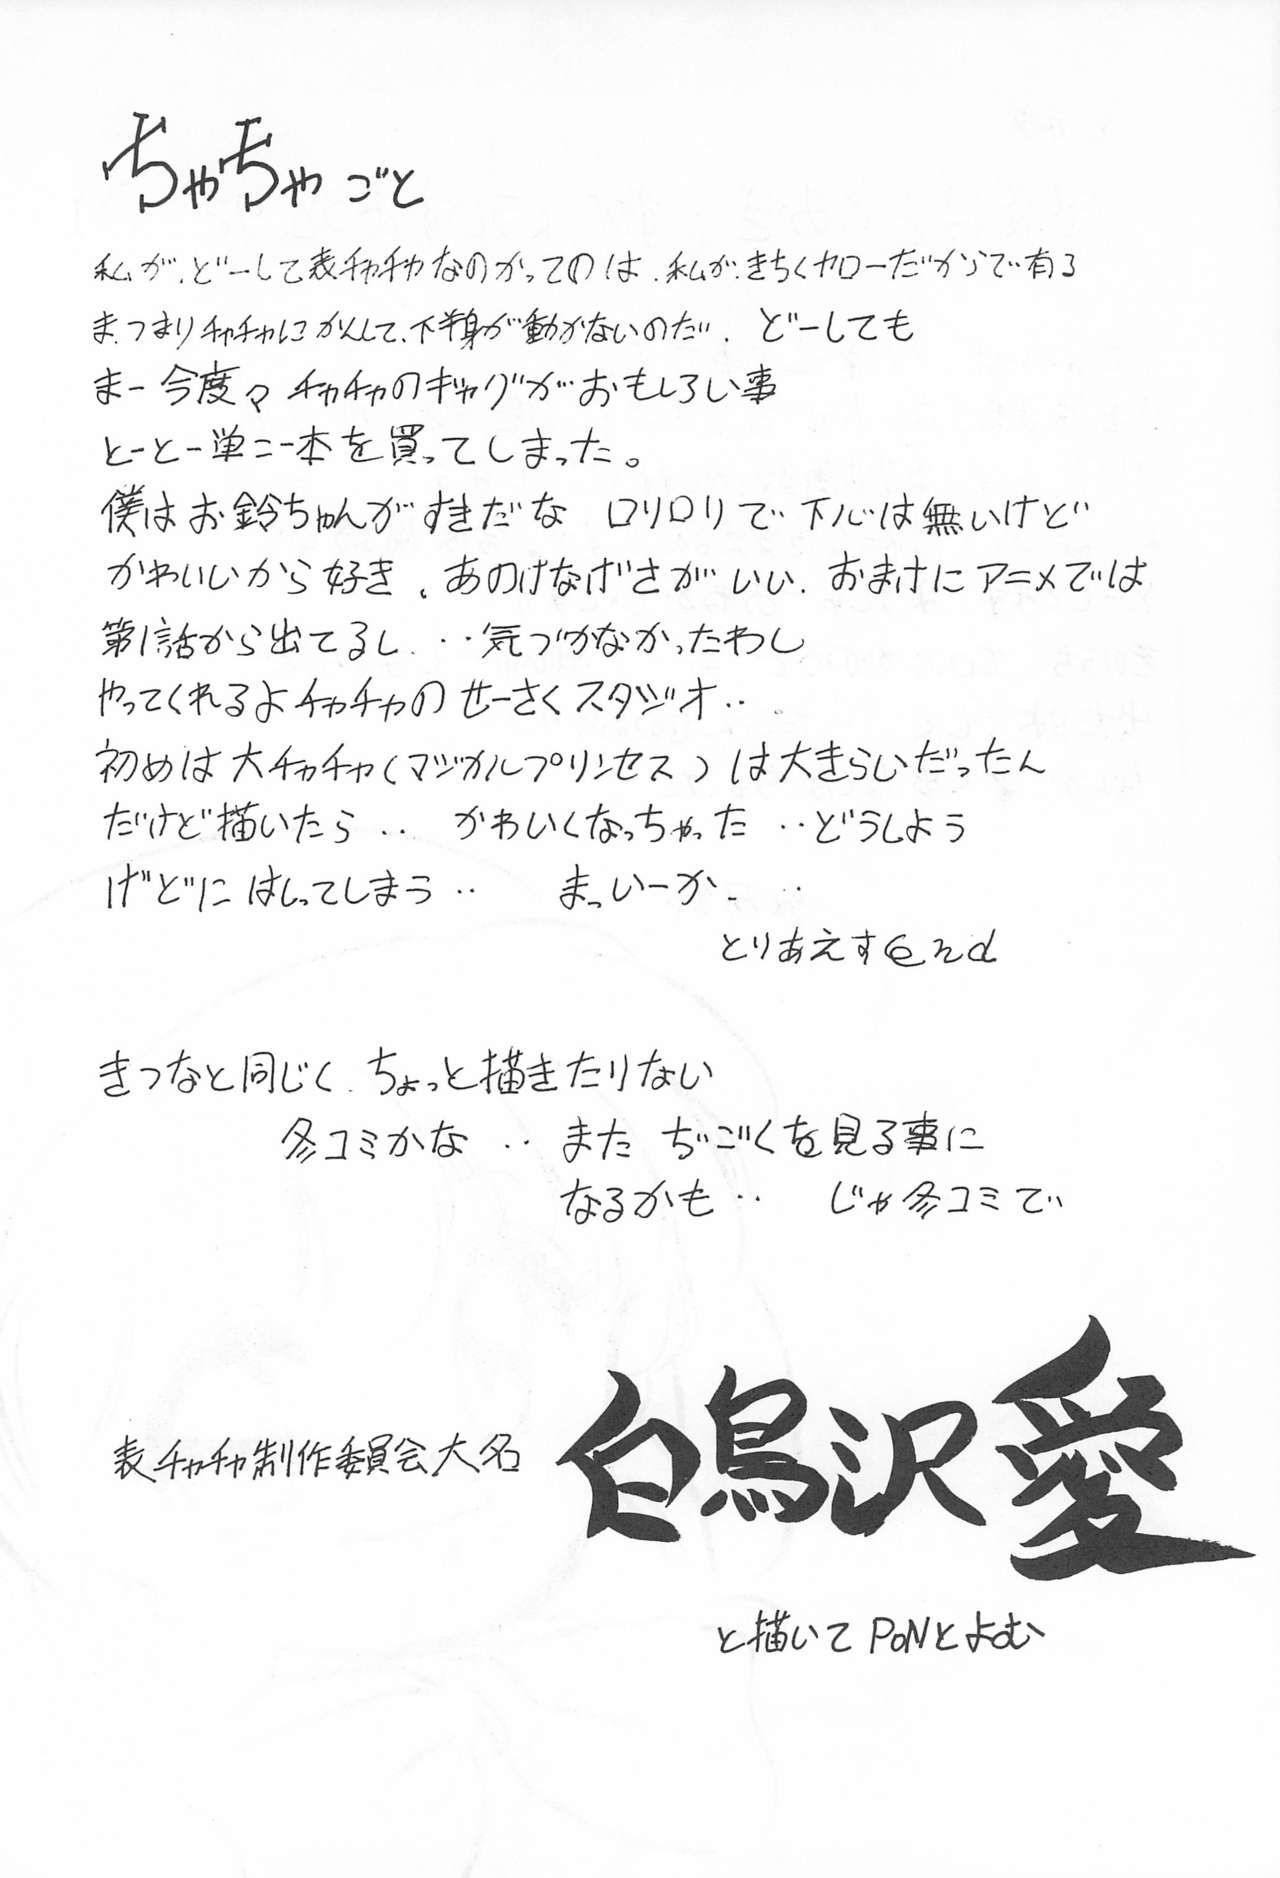 ちゃちゃごと
私が、どーして表チャチャなのかってのは、私が、きちくヤローだからで有る
ま、つまりチャチャにかんして、下半身が動かないのだ、どーしても
まー今度々チャチャのギャグがおもしろい事
とーとー単ニ一本を買ってしまった。
僕はお鈴ちゃんがすきだな ロリロリで下心は無いけど
かわいいから好き、あのけなげさがいい、おまけにアニメでは
第1話から出てるし、‥気づかなかったわし
やってくれるよチャチャのせーさくスタジオ‥
初めは大チャチャ(マジカルプリンセス)は大きらいだったん
だけど描いたら‥ かわいくなっちゃった‥どうしよう
げどにはしってしまう‥ まっいーか‥
とりあえすend
きつなと同じく、ちょっと描きたりない
冬コミかな‥ また ぢごくを見る事に
なるかも‥ じゃ冬コミで
表チャチャ制作委員会大名 白鳥沢愛
と描いてPoNとよむ